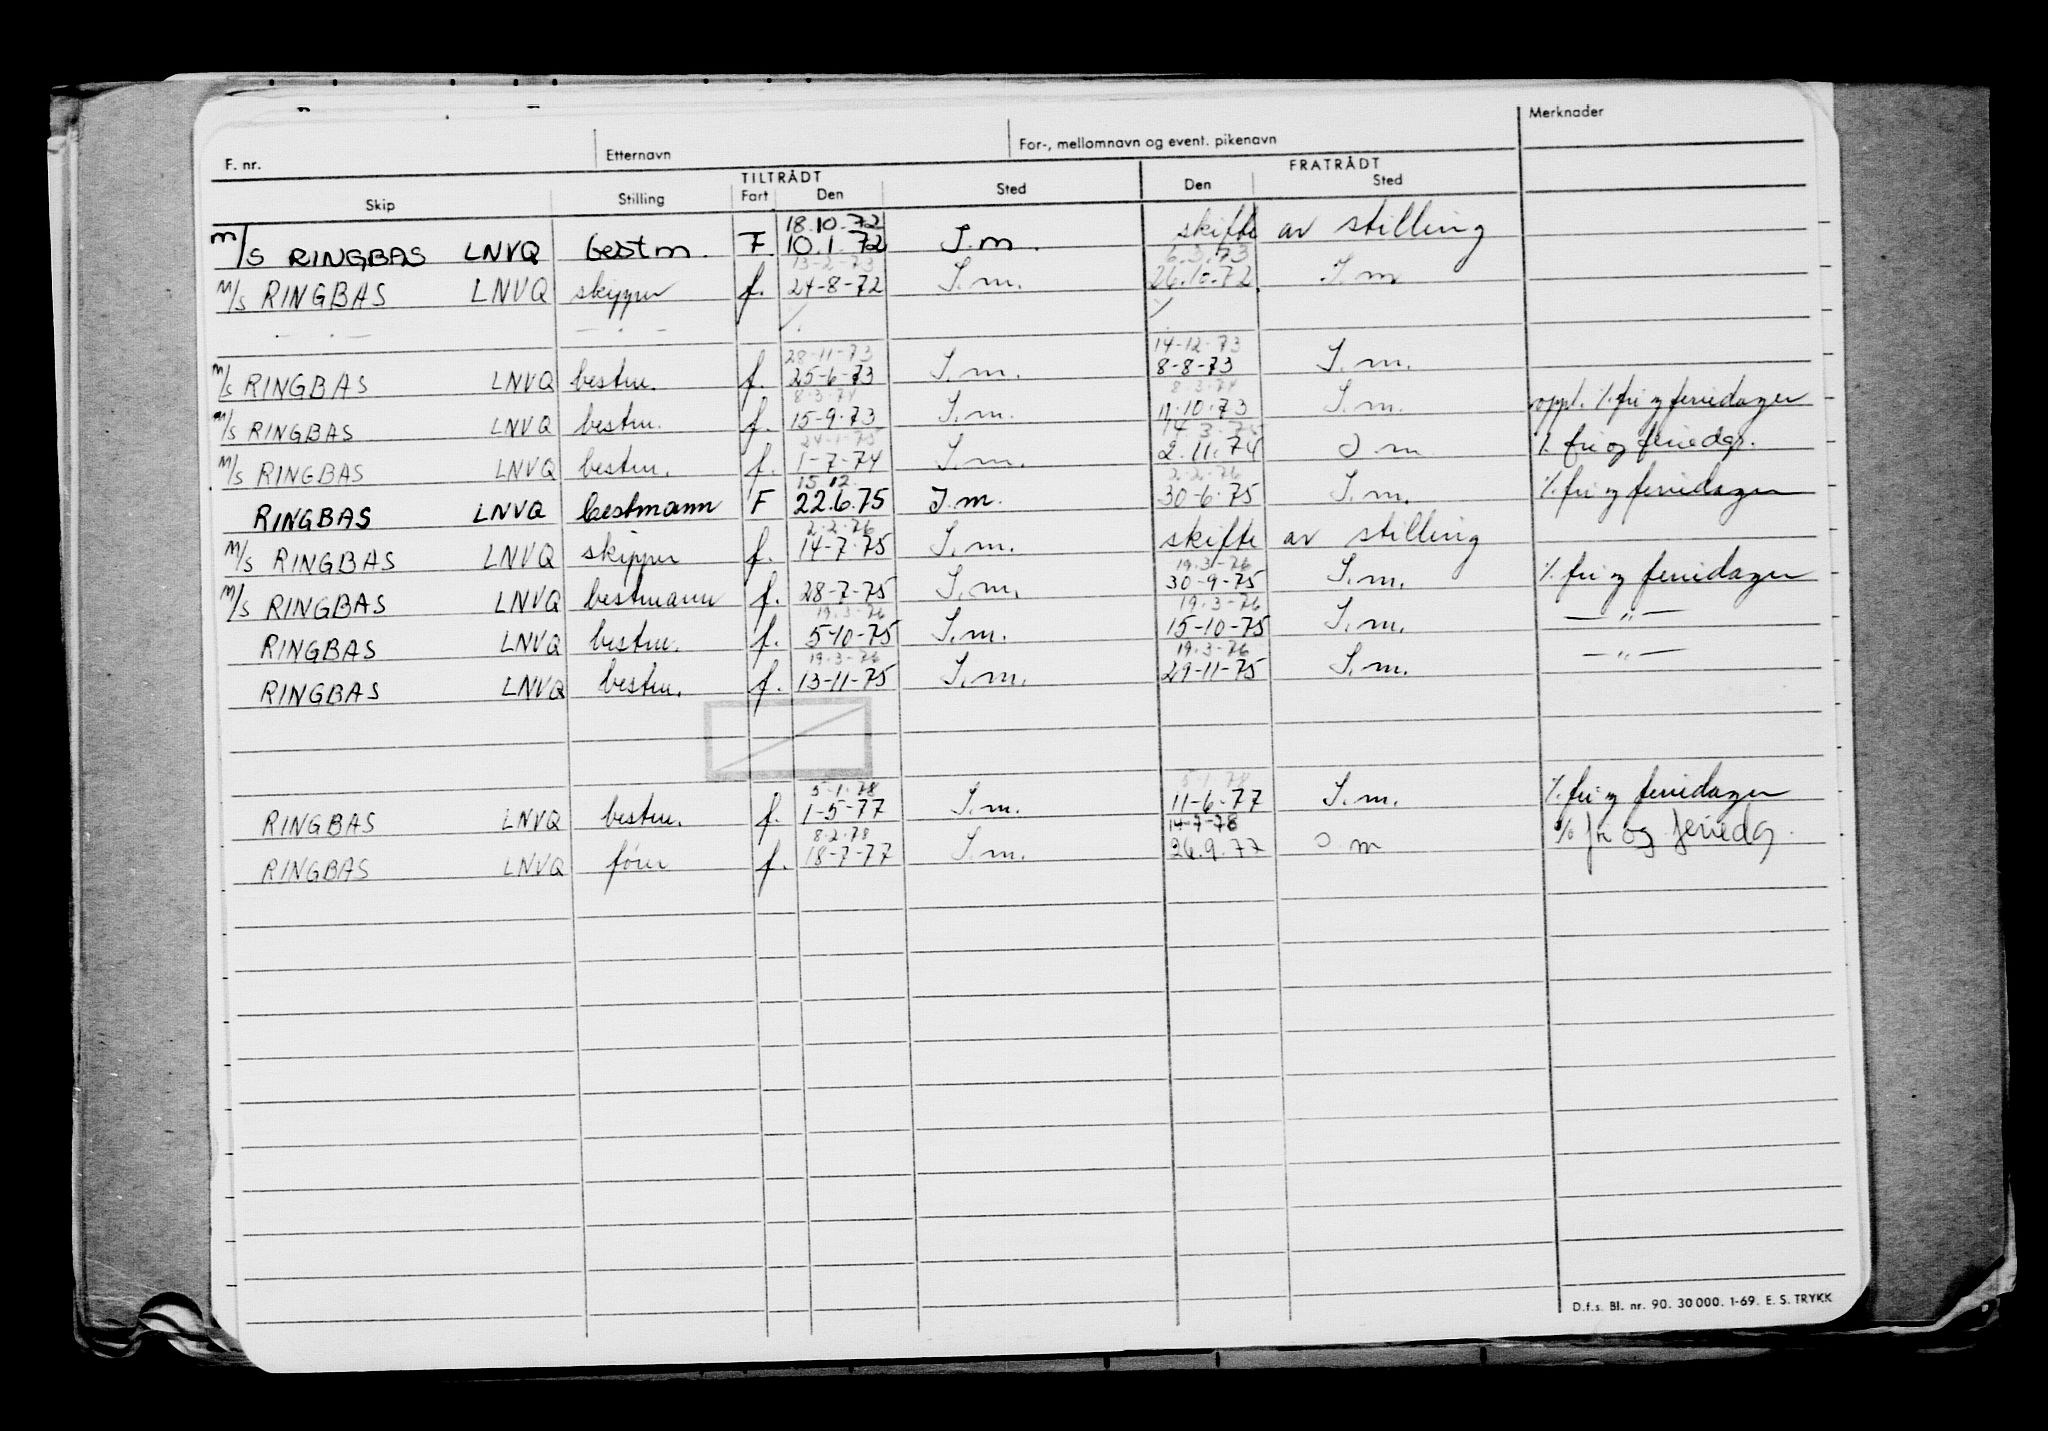 F. nr. Etternavn For-, mellomnavn og event. pikenavn Merknader
TILTRÅDT FRATRÅDT
Skip Stilling Fart Den Sted Den Sted
18.10.72
m/s RINGBAS LNVQ bestm. F 10.1.72 I.m. skifte av stilling
13-2-73 6.3.73
m/s RINGBAS LNVQ skipper f. 24-8-72 I.m. 26.10.72 I.m
— . — — . —
28-11-73 14-12-73
m/s RINGBAS LNVQ bestm. f. 25-6-73 I.m. 8-8-73 I.m.
8.3.74 8-3-74
m/s RINGBAS LNVQ bestm. f. 15-9-73 I.m. 11.10.73 I.m. oppt. % fri og feriedager
24-1-75 14.3.75
m/s RINGBAS LNVQ bestm. f. 1-7-74 I.m. 2.11.74 I m % fri og feriedgr.
15.12. 2-2-76
RINGBAS LNVQ bestmann F 22.6.75 I.m. 30-6-75 I.m. % fri og feriedager
2-2-76
m/s RINGBAS LNVQ skipper f. 14-7-75 I.m. skifte av stilling
19.3-76
m/s RINGBAS LNVQ bestmann f. 28-7-75 I.m. 30-9-75 I.m. % fri og feriedager
19.3-76 19.3-76
RINGBAS LNVQ bestm. f. 5-10-75 I.m. 15-10-75 I.m. — „ —
19.3-76 19.3-76
RINGBAS LNVQ bestm. f. 13-11-75 I.m. 29-11-75 I.m. — „ —
5-1-78 5-1-78
RINGBAS LNVQ bestm. f. 1-5-77 I.m. 11-6-77 I.m. % fri og feriedager
8.2.78 14-7-78
RINGBAS LNVQ fører f. 18-7-77 I.m. 26.9.77 I.m % fri og feriedg.
D.f.s. Bl. nr. 90. 30 000. 1-69. E. S. TRYKK